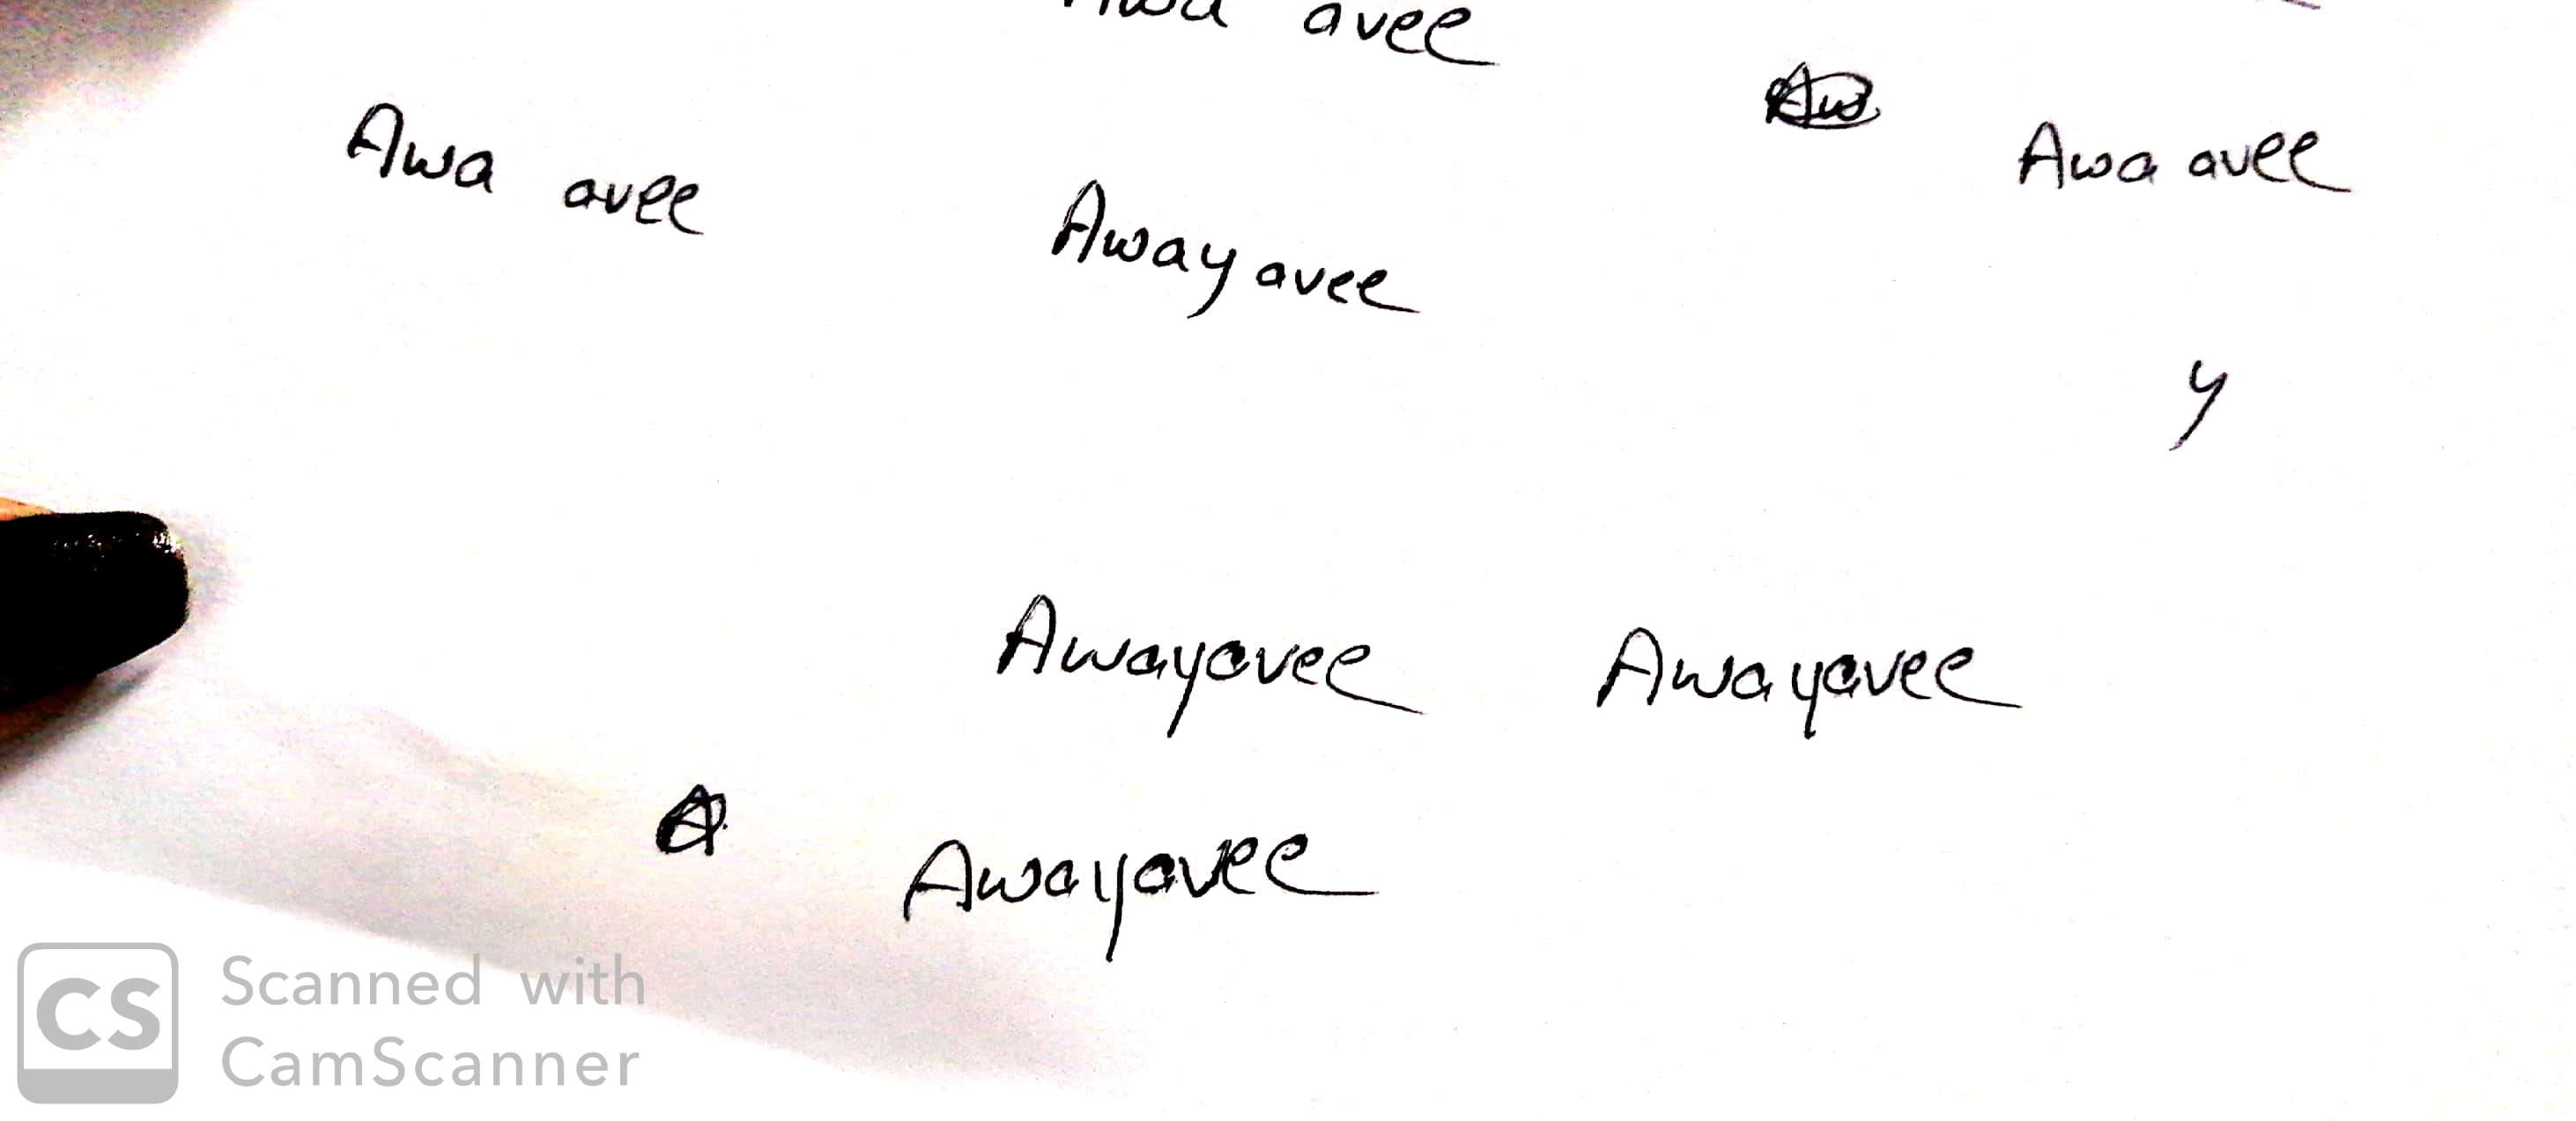 Awa avee
Awa avee
Awa avee
Away avee
y
Awayavee
Awayavee
Awayavee
Scanned with
CamScanner